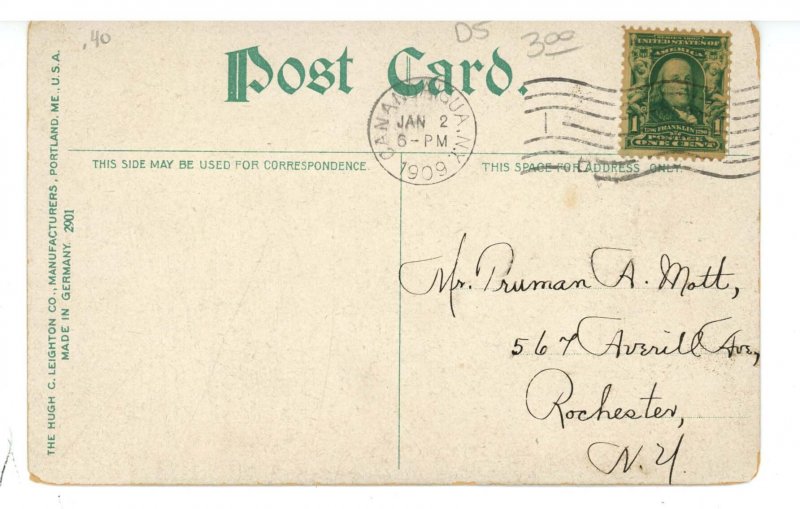 .40
DS
3.00
Post Card.
CANANDAIGUA, N.Y.
JAN 2
6-PM
1909
1
UNITED STATES OF
AMERICA
1 FRANKLIN 1
POSTAGE
ONE CENT
THIS SIDE MAY BE USED FOR CORRESPONDENCE.
THIS SPACE FOR ADDRESS ONLY.
THE HUGH C. LEIGHTON CO., MANUFACTURERS, PORTLAND, ME., U.S.A.
MADE IN GERMANY. 2901
Mr. Truman A. Mott,
567 Averill Ave,
Rochester,
N.Y.